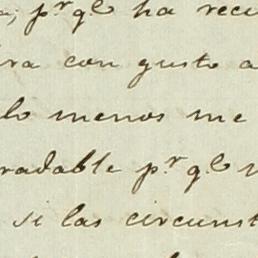 p.r q.e ha reci
ra con gusto a
lo menos me
radable p.r q.e
si las circunst